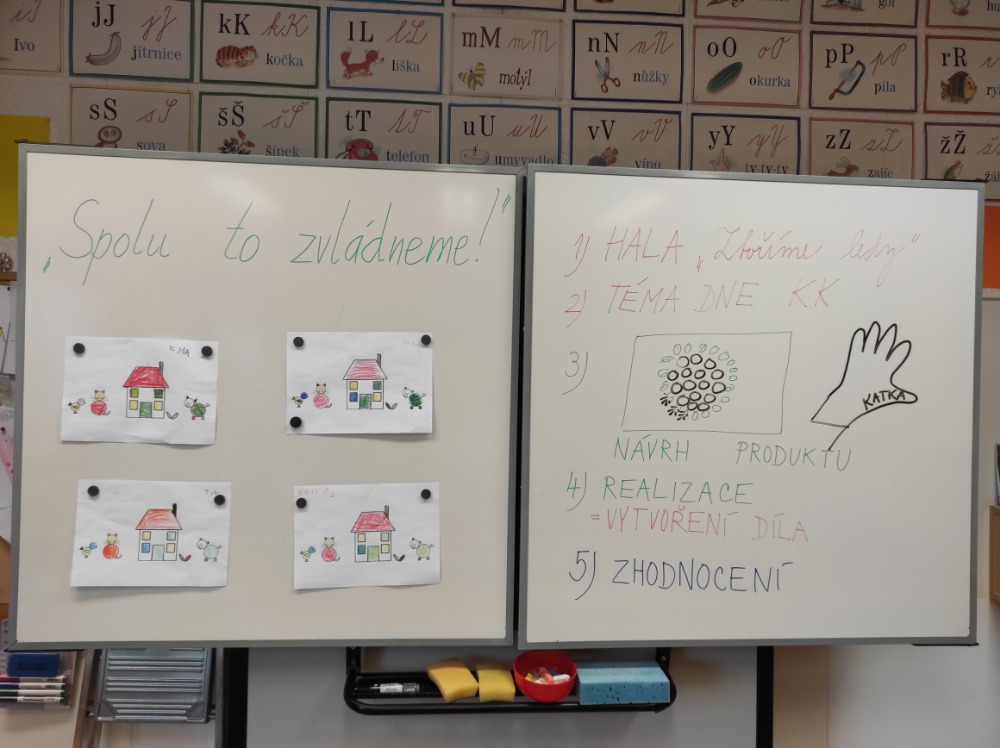 Ivo
jJ jJ
jitrnice
kK kK
kočka
lL lL
liška
mM mM
motýl
nN nN
nůžky
oO oO
okurka
pP pP
pila
rR
sS sS
sova
šŠ šŠ
šípek
tT tT
telefon
uU uU
umyvadlo
vV vV
víno
yY yY
ty-ty-ty
zZ zZ
zajíc
žŽ
„Spolu to zvládneme!"
1) HALA „Zboříme ledy"
2) TÉMA DNE KK
3)
KATKA
NÁVRH PRODUKTU
4) REALIZACE
= VYTVOŘENÍ DÍLA
5) ZHODNOCENÍ